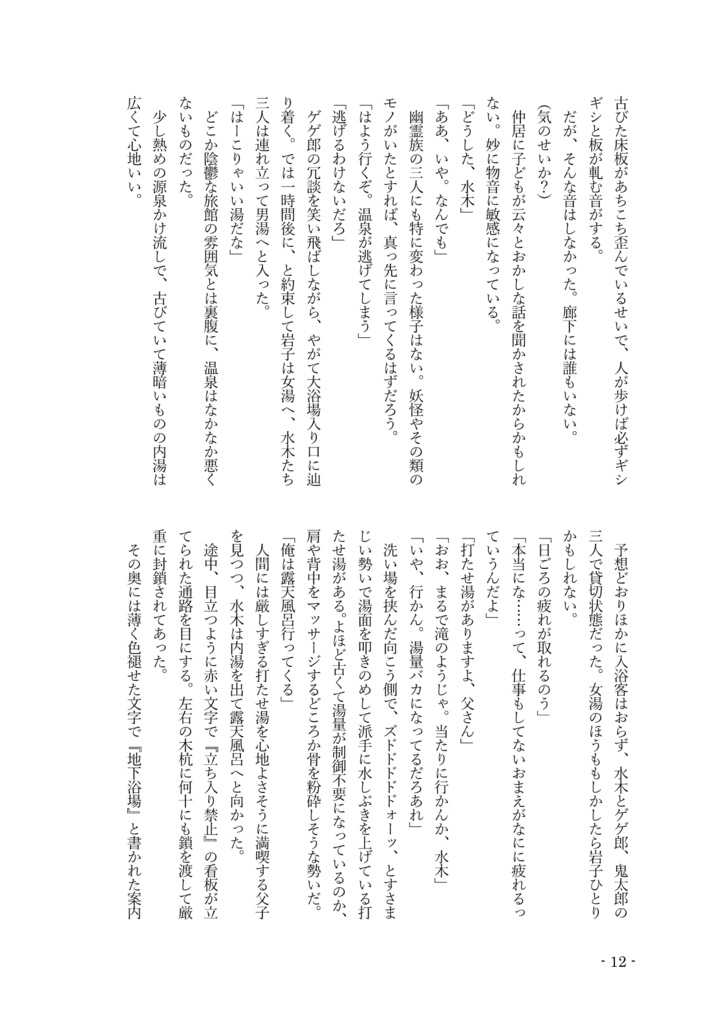 古びた床板があちこち歪んでいるせいで、人が歩けば必ずギシ
ギシと板が軋む音がする。
だが、そんな音はしなかった。廊下には誰もいない。
(気のせいか?)
仲居に子どもが云々とおかしな話を聞かされたからかもしれ
ない。妙に物音に敏感になっている。
「どうした、水木」
「ああ、いや。なんでも」
幽霊族の三人にも特に変わった様子はない。妖怪やその類の
モノがいたとすれば、真っ先に言ってくるはずだろう。
「はよう行くぞ。温泉が逃げてしまう」
「逃げるわけないだろ」
ゲゲ郎の冗談を笑い飛ばしながら、やがて大浴場入り口に辿
り着く。では一時間後に、と約束して岩子は女湯へ、水木たち
三人は連れ立って男湯へと入った。
「はーこりゃいい湯だな」
どこか陰鬱な旅館の雰囲気とは裏腹に、温泉はなかなか悪く
ないものだった。
少し熱めの源泉かけ流しで、古びていて薄暗いものの内湯は
広くて心地いい。
予想どおりほかに入浴客はおらず、水木とゲゲ郎、鬼太郎の
三人で貸切状態だった。女湯のほうももしかしたら岩子ひとり
かもしれない。
「日ごろの疲れが取れるのう」
「本当にな……って、仕事もしてないおまえがなにに疲れるっ
ていうんだよ」
「打たせ湯がありますよ、父さん」
「おお、まるで滝のようじゃ。当たりに行かんか、水木」
「いや、行かん。湯量バカになってるだろあれ」
洗い場を挟んだ向こう側で、ズドドドドドォーッ、とすさま
じい勢いで湯面を叩きのめして派手に水しぶきを上げている打
たせ湯がある。よほど古くて湯量が制御不要になっているのか、
肩や背中をマッサージするどころか骨を粉砕しそうな勢いだ。
「俺は露天風呂行ってくる」
人間には厳しすぎる打たせ湯を心地よさそうに満喫する父子
を見つつ、水木は内湯を出て露天風呂へと向かった。
途中、目立つように赤い文字で『立ち入り禁止』の看板が立
てられた通路を目にする。左右の木杭に何十にも鎖を渡して厳
重に封鎖されてあった。
その奥には薄く色褪せた文字で『地下浴場』と書かれた案内
- 12 -